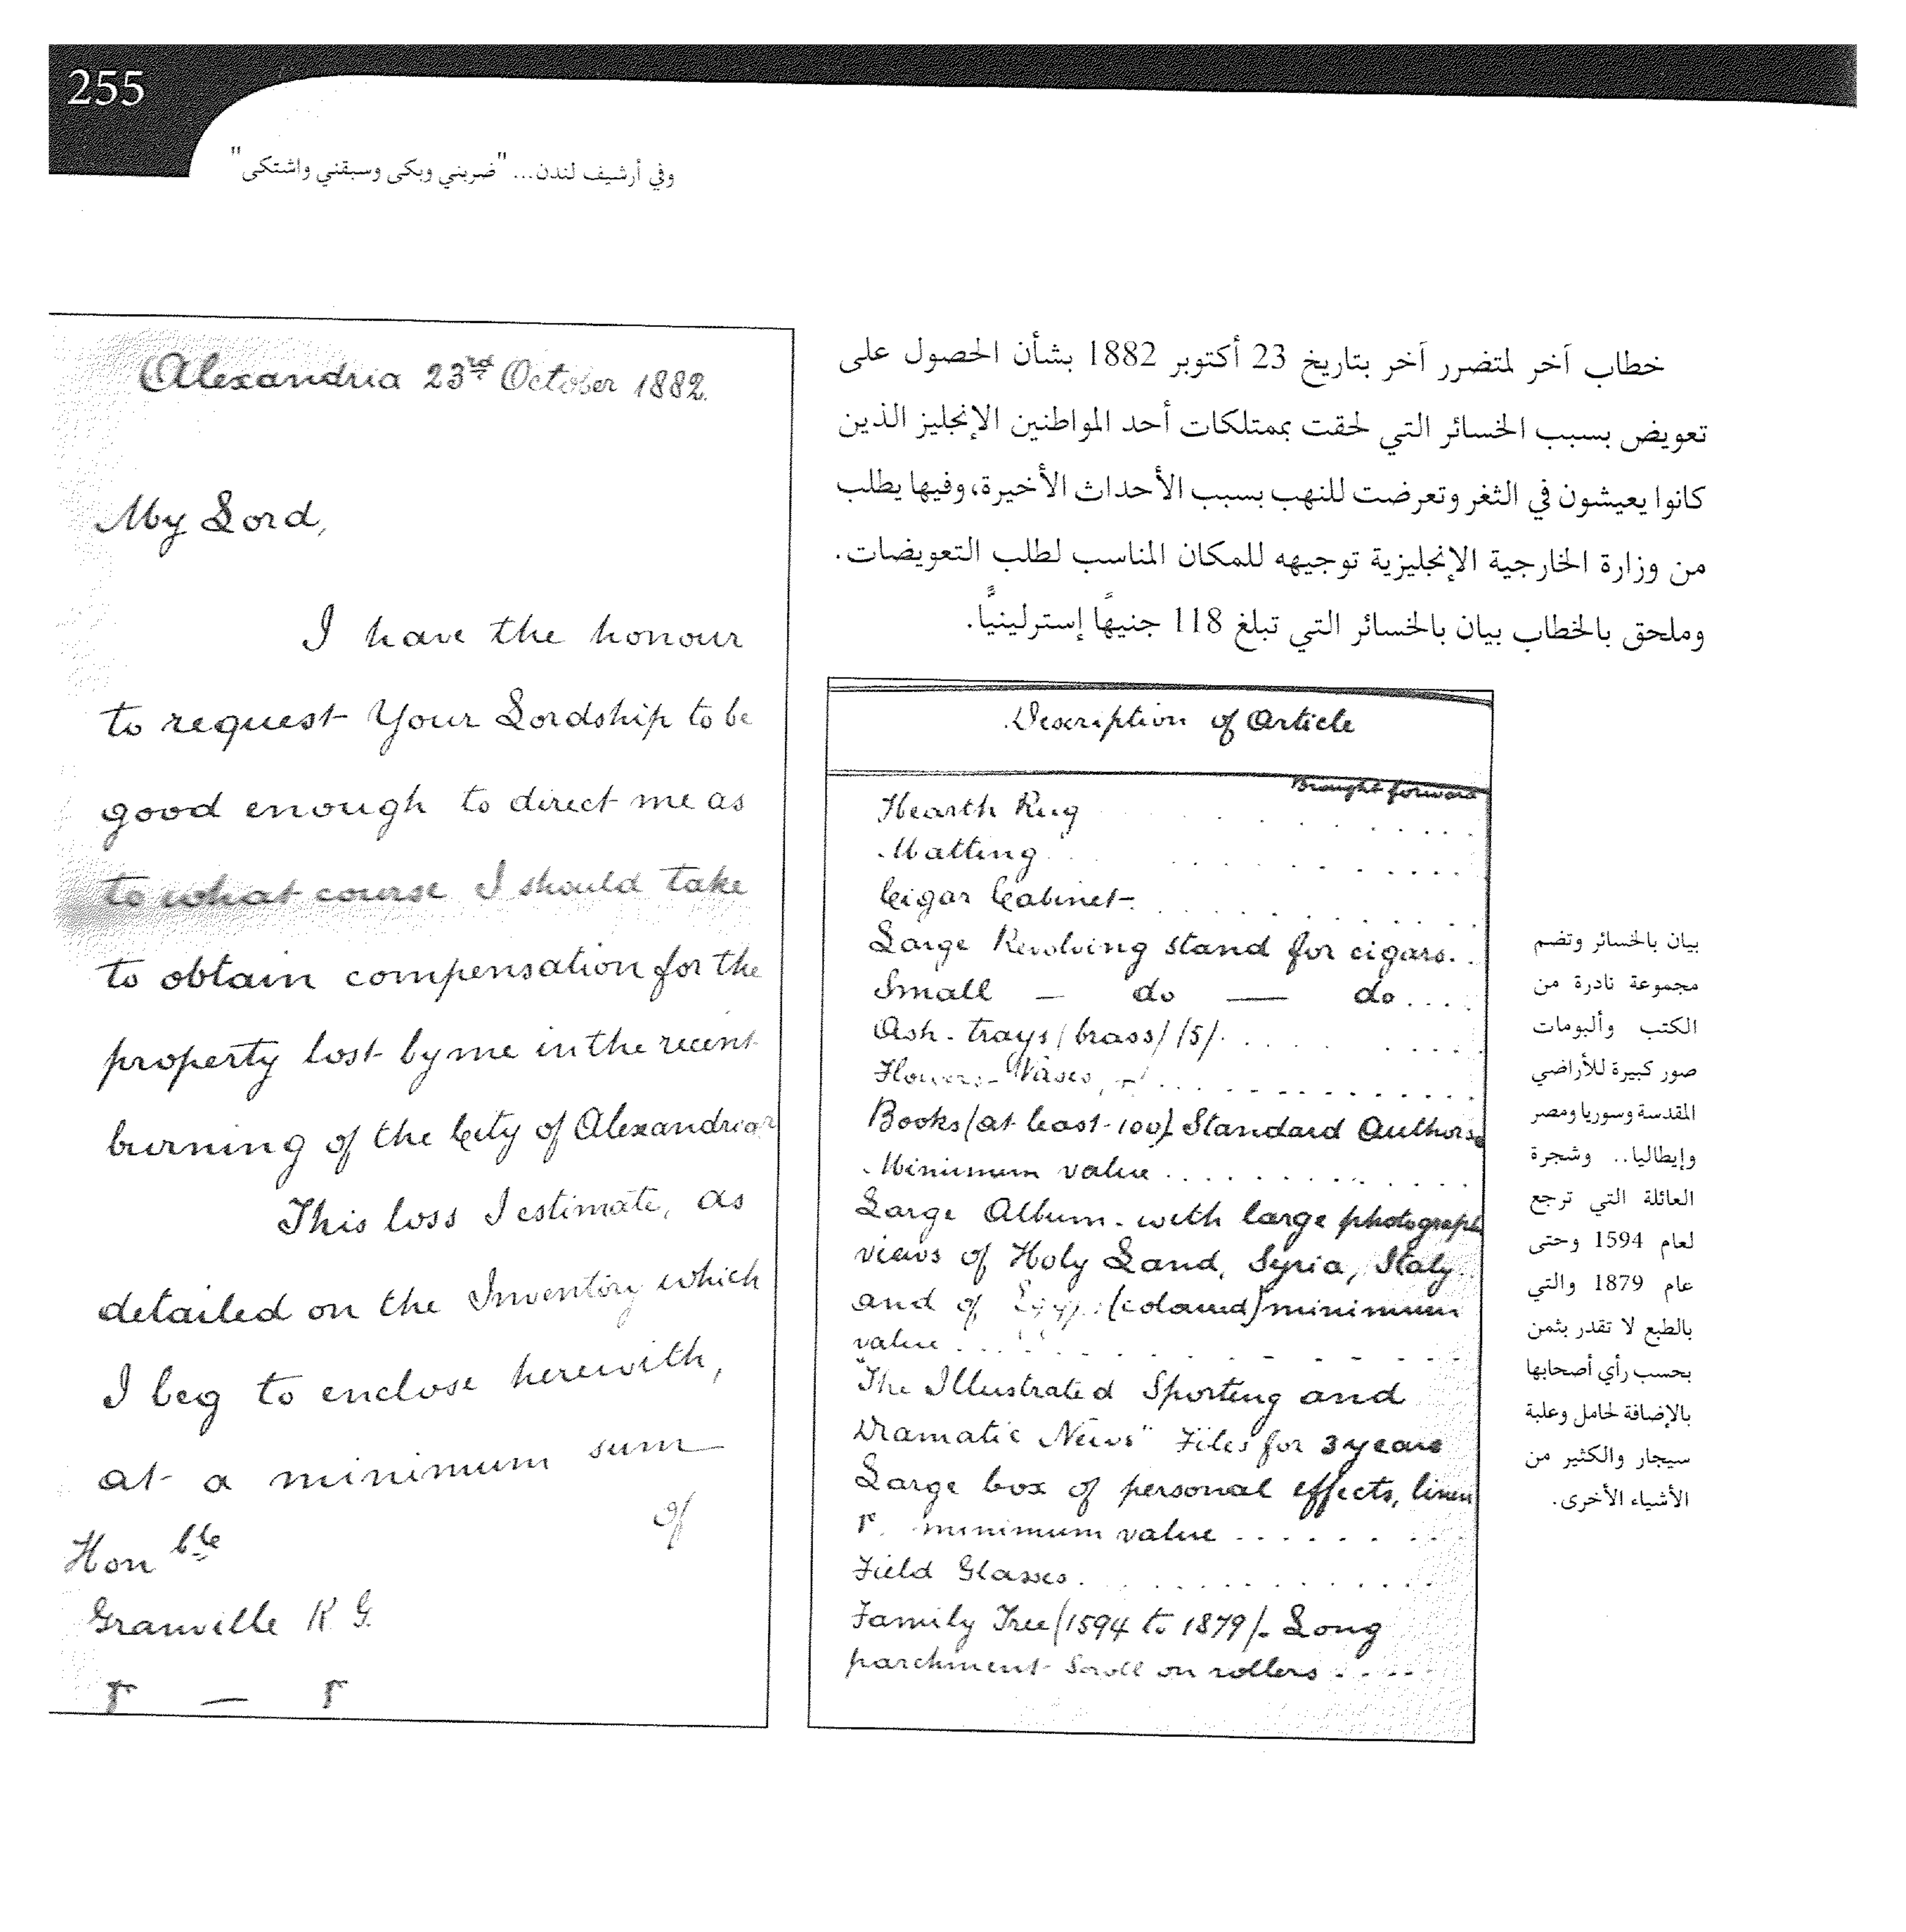 255
وفي أرشيف لندن... "ضربني وبكى وسبقني واشتكى"
خطاب آخر لمتضرر آخر بتاريخ 23 أكتوبر 1882 بشأن الحصول على
تعويض بسبب الخسائر التي لحقت بممتلكات أحد المواطنين الإنجليز الذين
كانوا يعيشون في الثغر وتعرضت للنهب بسبب الأحداث الأخيرة، وفيها يطلب
من وزارة الخارجية الإنجليزية توجيهه للمكان المناسب لطلب التعويضات.
وملحق بالخطاب بيان بالخسائر التي تبلغ 118 جنيهًا إسترلينيًّا.
Alexandria 23rd October 1882.
My Lord,
I have the honour
to request Your Lordship to be
good enough to direct me as
to what course I should take
to obtain compensation for the
property lost by me in the recent
burning of the City of Alexandria
This loss I estimate, as
detailed on the Inventory which
I beg to enclose herewith,
at a minimum sum
of
Honble
Granville K G.
Description of Article
Brought forward
Hearth Rug
Matting
Cigar Cabinet
Large Revolving stand for cigars.
Small — do — do
Ash-trays (brass) (5)
Flowers-Vases,
Books (at least 100) Standard Authors
Minimum value
Large Album with large photograph
views of Holy Land, Syria, Italy
and of Egypt (coloured) minimum
value
"The Illustrated Sporting and
Dramatic News" Files for 3 years
Large box of personal effects, linen
minimum value
Field Glasses
Family Tree (1594 to 1879). Long
parchment Scroll on rollers
بيان بالخسائر وتضم
مجموعة نادرة من
الكتب وألبومات
صور كبيرة للأراضي
المقدسة وسوريا ومصر
وإيطاليا.. وشجرة
العائلة التي ترجع
لعام 1594 وحتى
عام 1879 والتي
بالطبع لا تقدر بثمن
بحسب رأي أصحابها
بالإضافة لحامل وعلبة
سيجار والكثير من
الأشياء الأخرى.